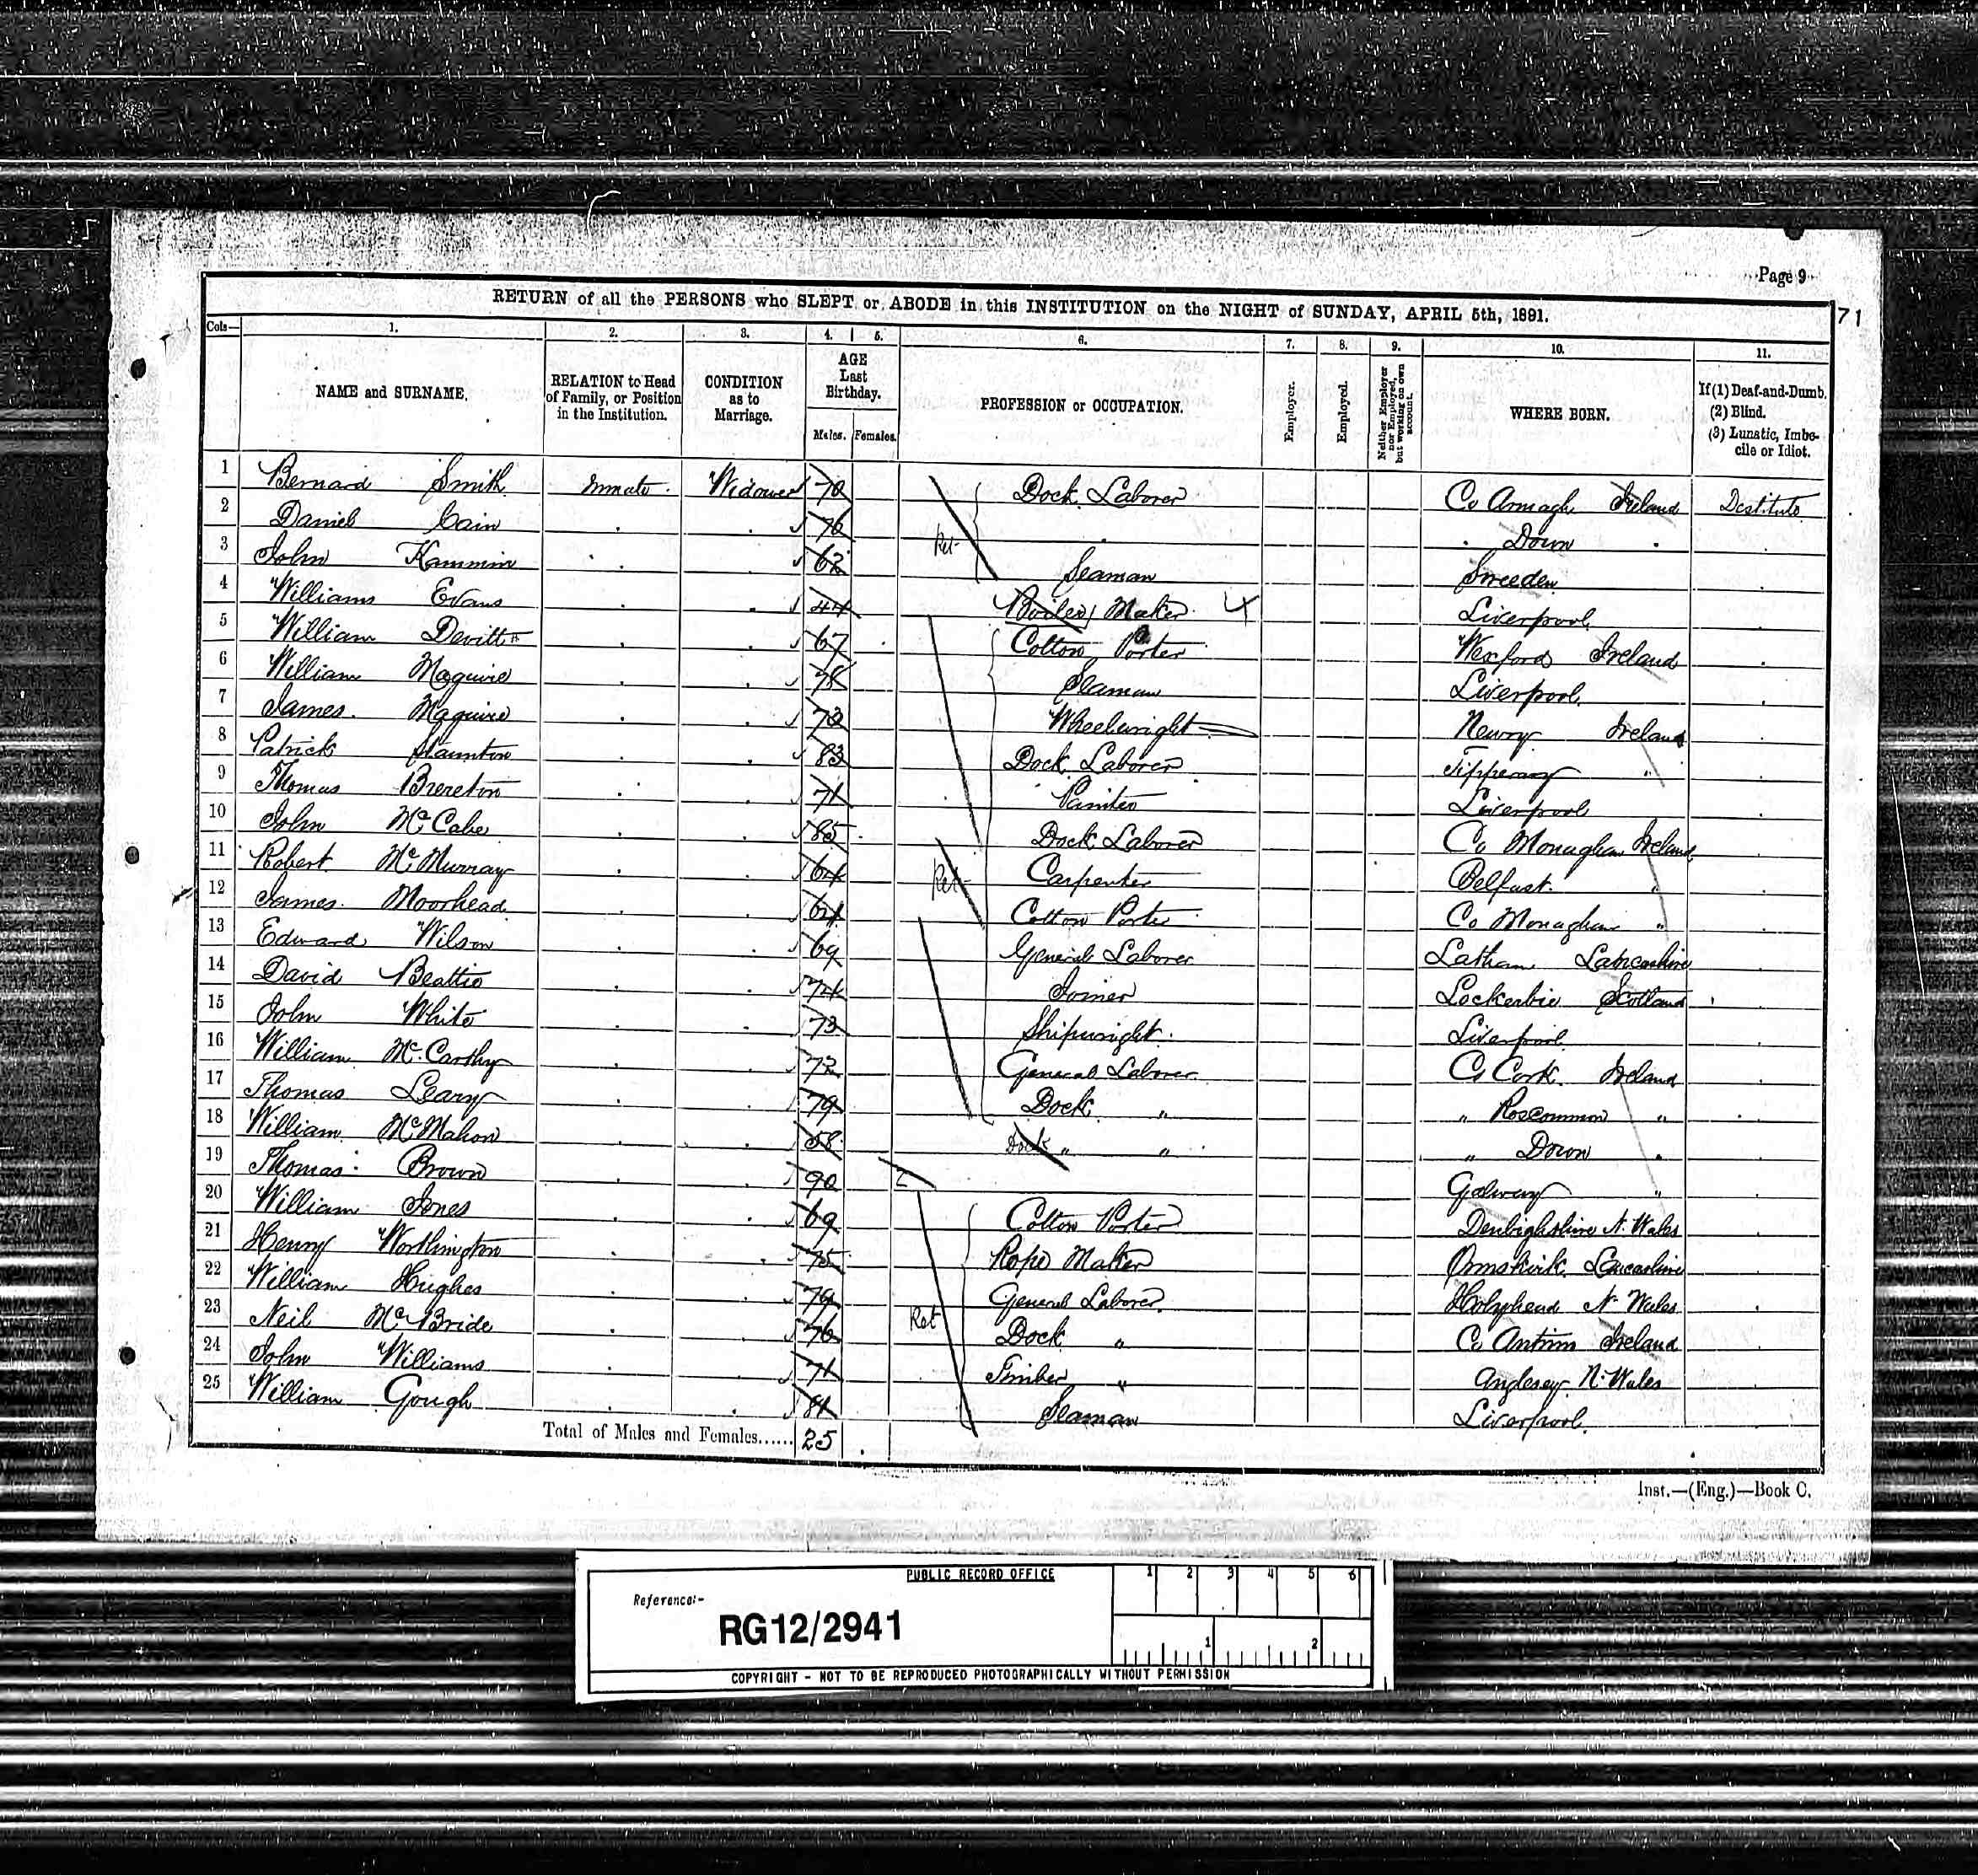 Page 9
71
RETURN of all the PERSONS who SLEPT or ABODE in this INSTITUTION on the NIGHT of SUNDAY, APRIL 5th, 1891.
Cols— 1. 2. 3. 4. 5. 6. 7. 8. 9. 10. 11.
NAME and SURNAME. RELATION to Head of Family, or Position in the Institution. CONDITION as to Marriage. AGE Last Birthday. Males. Females. PROFESSION or OCCUPATION. Employer. Employed. Neither Employer nor Employed, but working on own account. WHERE BORN. If (1) Deaf-and-Dumb. (2) Blind. (3) Lunatic, Imbecile or Idiot.
1 Bernard Smith Inmate Widower 70 Dock Laborer Co Armagh Ireland Destitute
2 Daniel Cain 76 Ret Down
3 John Kammin 62 Seaman Sweeden
4 Williams Evans 44 Boiler Maker 4 Liverpool
5 William Devitt 67 Cotton Porter Wexford Ireland
6 William Maguire 78 Seaman Liverpool
7 James Maguire 72 Wheelwright Newry Ireland
8 Patrick Staunton 83 Dock Laborer Tipperary "
9 Thomas Brereton 71 Painter Liverpool
10 John McCabe 85 Dock Laborer Co Monaghan Ireland
11 Robert McMurray 64 Ret Carpenter Belfast "
12 James Moorhead 64 Cotton Porter Co Monaghan "
13 Edward Wilson 69 General Laborer Latham Lancashire
14 David Beattie 74 Joiner Lockerbie Scotland
15 John White 73 Shipwright Liverpool
16 William McCarthy 72 General Laborer Co Cork Ireland
17 Thomas Leary 79 Dock " " Roscommon "
18 William McMahon 58 Dock " " " Down "
19 Thomas Brown 90 Galway "
20 William Jones 69 Cotton Porter Denbighshire N. Wales
21 Henry Worthington 75 Rope Maker Ormskirk Lancashire
22 William Hughes 79 General Laborer Holyhead N. Wales
23 Neil McBride 76 Ret Dock " Co Antrim Ireland
24 John Williams 71 Timber " Anglesey N. Wales
25 William Gough 81 Seaman Liverpool
Total of Males and Females...... 25
Inst.—(Eng.)—Book C.
PUBLIC RECORD OFFICE
1 2 3 4 5 6
Reference:-
RG12/2941
1 2
COPYRIGHT - NOT TO BE REPRODUCED PHOTOGRAPHICALLY WITHOUT PERMISSION